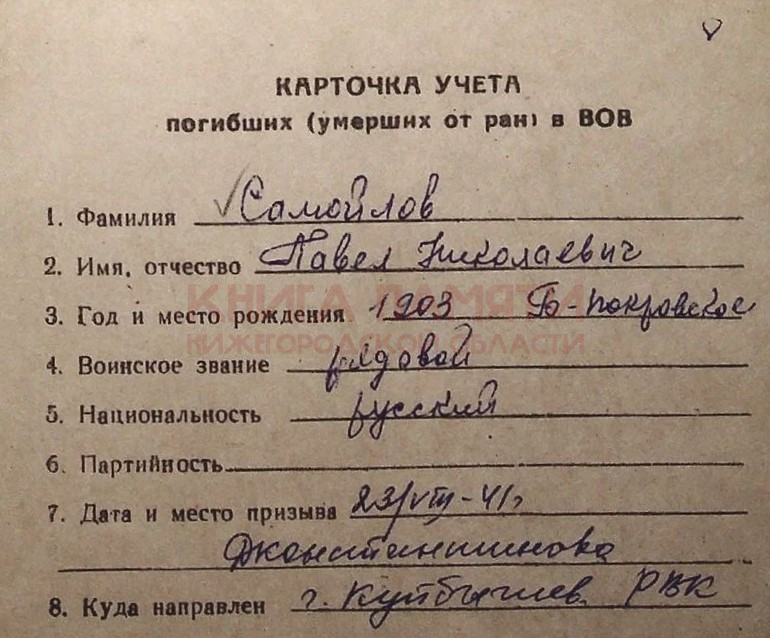 КАРТОЧКА УЧЕТА
погибших (умерших от ран) в ВОВ
1. Фамилия Самойлов
2. Имя, отчество Павел Николаевич
КНИГА ПАМЯТИ
3. Год и место рождения 1903 Б-Покровское
НИЖЕГОРОДСКОЙ ОБЛАСТИ
4. Воинское звание рядовой
5. Национальность русский
6. Партийность
7. Дата и место призыва 23/VIII-41г
8. Куда направлен г. Куйбышев РВК